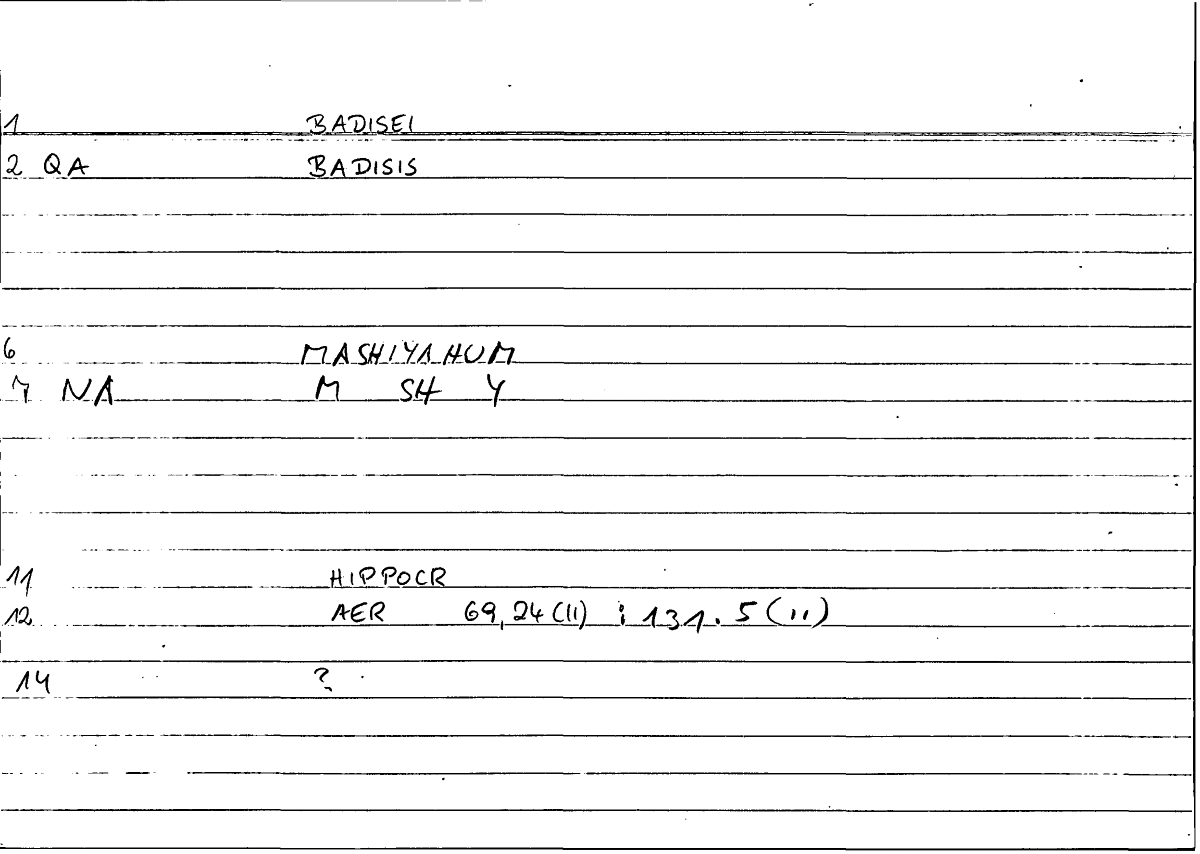 1 BADISEI
2 QA BADISIS
6 MASHIYAHUM
7 NA M SH Y
11 HIPPOCR
12 AER 69,24(II) ; 131.5(II)
14 ?